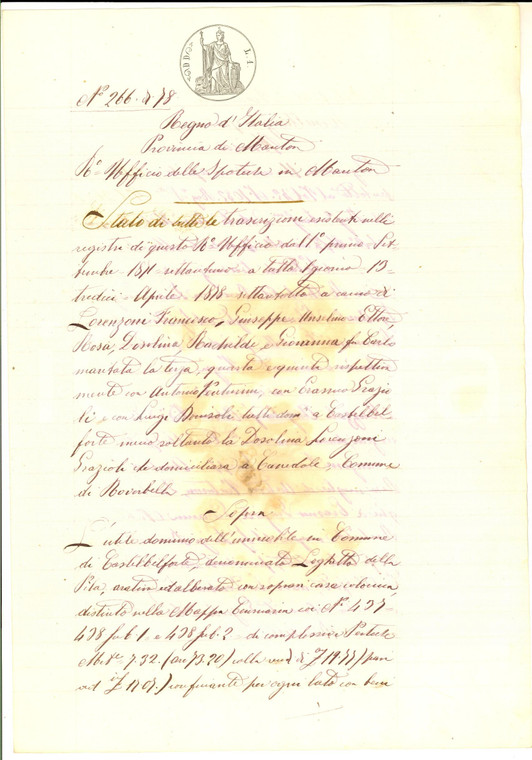 L. 1
No 266. d 78
Regno d'Italia
Provincia di Mantova
Ro Ufficio delle Ipoteche in Mantova
Stato di tutte le trascrizioni esistenti nelli
registri di questo Ro Ufficio dall' 1o primo Set-
tembre 1871 settantuno a tutto il giorno 13-
tredici Aprile 1878 settantotto a carico di
Lorenzoni Francesco, Giuseppe Anselmo Ettore,
Rosa, Dosolina, Matilde e Giovanna fu Carlo
maritata la terza, quarta e quinta rispettiva
mente con Antonio Venturini, con Erasmo Grazio
li e con Luigi tutti dom. a Castelbel-
forte meno soltanto la Dosolina Lorenzoni
Grazioli che domiciliava a Canedole in Comune
di Roverbella
Sopra
L'utile dominio dell'immobile in Comune
di Castelbelforte denominato Loghetto della
Pila, aratorio ed alberato con sopravi casa colonica
distinto nella Mappa Censuaria coi Ni 437-
438 sub. 1 e 438 sub. 2 - di complessive Pertiche
Metre 7.32. (are 73.20) colla rend. di £ 14.77 (pari
ad it £ 12.07.) confinante per ogni lato con beni